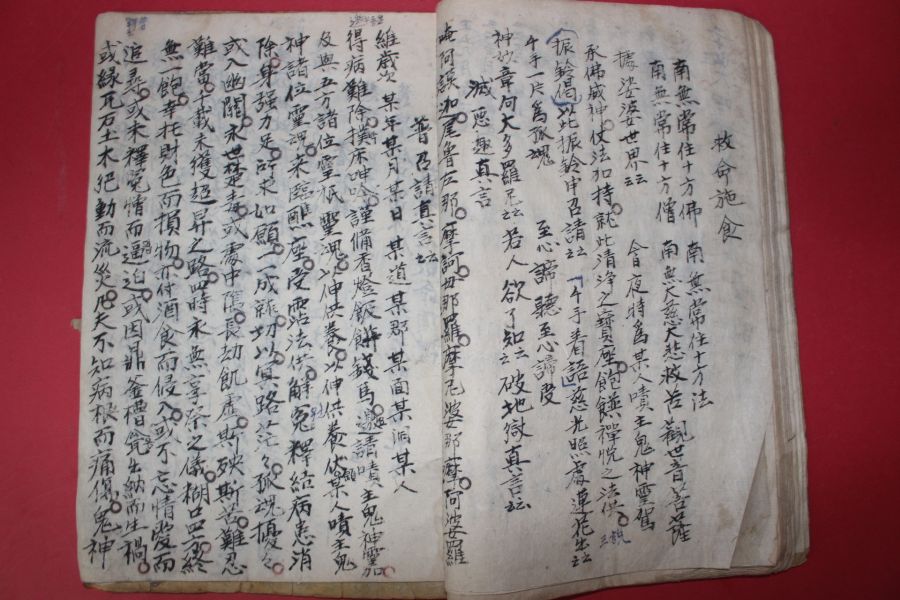 救命施食
南無常住十方佛 南無常住十方法
南無常住十方僧 南無大慈大悲救苦觀世音菩薩
據娑婆世界云云 今夜時爲某人嘖主鬼神靈駕
承佛威神仗法加持就此清淨之寶座飽饍禪悅之法供 三說
振鈴偈 以此振鈴申召請云云 千手着語 慈光照處蓮花出云云
千手一片爲孤魂 至心諦聽至心諦受
神妙章句大多羅尼云云 若人欲了知云云 破地獄眞言云云
滅惡趣眞言
唵阿謨迦尾魯左那摩訶母那羅摩尼婆那摩阿婆羅
普召請眞言云云
維歲次 某年某月某日 某道某郡某面某洞某人
得病難除撲床呻吟謹備香燈飯餠錢馬邀請嘖主鬼神靈加
及與五方諸位靈祇靈魂以伸供養以伸供養伏願某人嘖主鬼
神諸位靈魂來臨醮座受霑法供解寃釋結病患消
除身强力足所求如願一一成就切以冥路茫々孤魂擾々
或入幽關永世楚毒或處中陰長劫飢虛斯殃斯苦難忍
難當千載未獲超昇之路四時永無享祭之儀糊口四方終
無一飽幸托財色而損物亦付酒食而侵人或不忘情愛而
追尋或未釋寃情而逼迫或因鼎釜槽瓮出納而生禍
或緣瓦石土木犯動而流災凡夫不知病根而痛傷鬼神